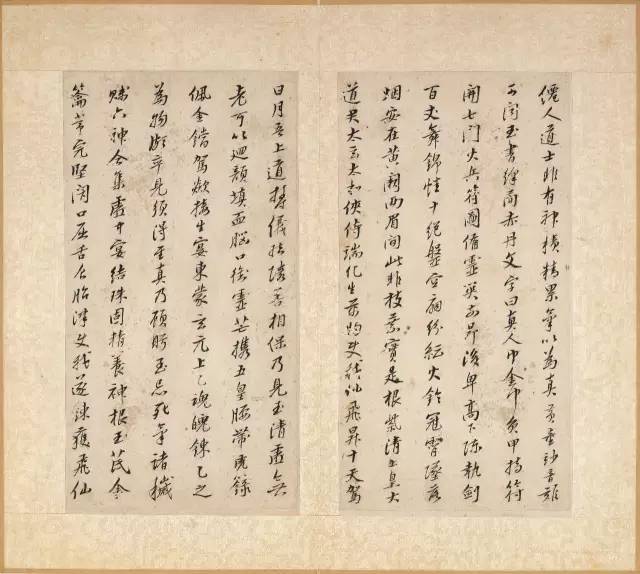 僊人道士非有神積精累氣以為真黃童妙音難
可聞玉書絳簡赤丹文字曰真人巾金巾負甲持符
開七門火兵符圖備靈關前昂後卑高下陳執劍
百丈舞錦幡十絕盤空扇紛紜火鈴冠霄墜落
烟安在黃闕兩眉間此非枝葉實是根紫清上皇大
道君太玄太和俠侍端化生萬物使我仙飛昇十天駕
日月吾上道鬱儀結璘善相保乃見玉清虛無
老可以迴顏填血腦口銜靈芒攜五皇腰帶虎籙
佩金鐺駕欻接生宴東蒙玄元上一魂魄鍊一之
為物頗卒見須得至真乃顧盼至忌死氣諸穢
賤六神合集虛中宴結珠固精養神根玉芪金
籥常完堅閉口屈舌食胎津使我遂鍊獲飛仙